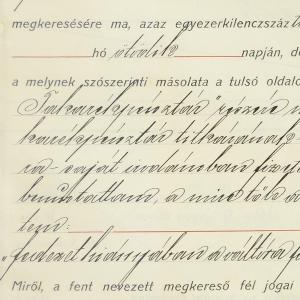 megkeresésére ma, azaz egyezerkilenczszáz
hó ötödik napján, d
a melynek szószerinti másolata a tulsó oldalo
Takarékpénztár" részv
karékpénztár titkárának
saját irodámban
bemutattam, a mire tőle a
tem:
„fedezet hiányában a váltóra fi
Miről, a fent nevezett megkereső fél jogai